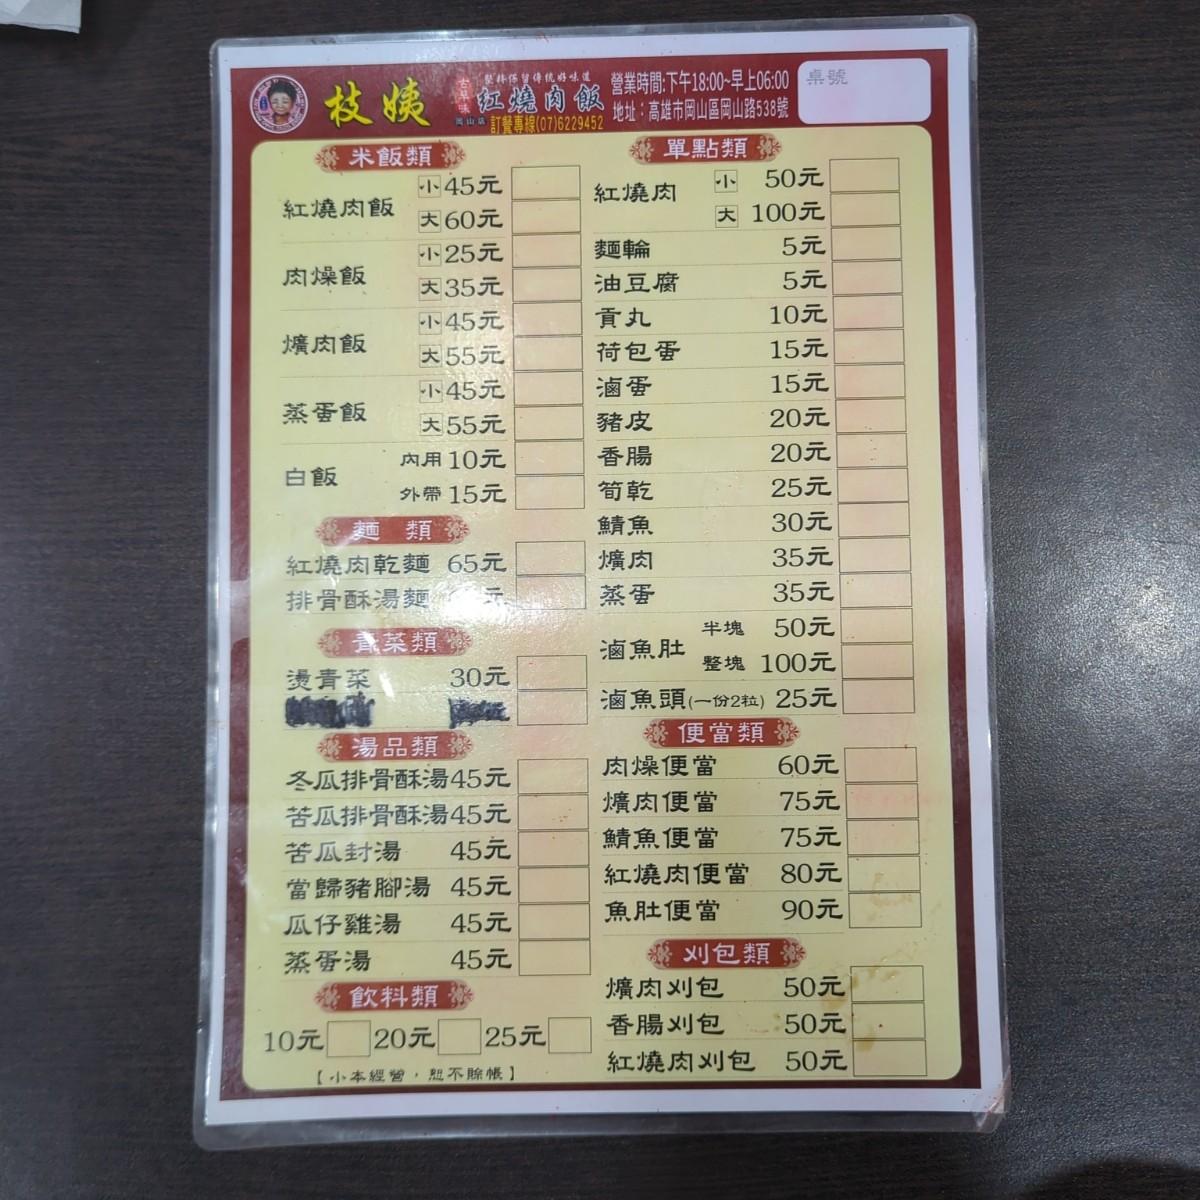 枝姨
古早味
岡山店
堅持保留傳統好味道
紅燒肉飯
訂餐專線(07)6229452
營業時間:下午18:00~早上06:00
地址:高雄市岡山區岡山路538號
桌號
米飯類
紅燒肉飯 小 45元
大 60元
肉燥飯 小 25元
大 35元
爌肉飯 小 45元
大 55元
蒸蛋飯 小 45元
大 55元
白飯 內用 10元
外帶 15元
麵 類
紅燒肉乾麵 65元
排骨酥湯麵 元
青菜類
燙青菜 30元
湯品類
冬瓜排骨酥湯 45元
苦瓜排骨酥湯 45元
苦瓜封湯 45元
當歸豬腳湯 45元
瓜仔雞湯 45元
蒸蛋湯 45元
飲料類
10元 20元 25元
【小本經營,恕不賒帳】
單點類
紅燒肉 小 50元
大 100元
麵輪 5元
油豆腐 5元
貢丸 10元
荷包蛋 15元
滷蛋 15元
豬皮 20元
香腸 20元
筍乾 25元
鯖魚 30元
爌肉 35元
蒸蛋 35元
滷魚肚 半塊 50元
整塊 100元
滷魚頭(一份2粒) 25元
便當類
肉燥便當 60元
爌肉便當 75元
鯖魚便當 75元
紅燒肉便當 80元
魚肚便當 90元
刈包類
爌肉刈包 50元
香腸刈包 50元
紅燒肉刈包 50元